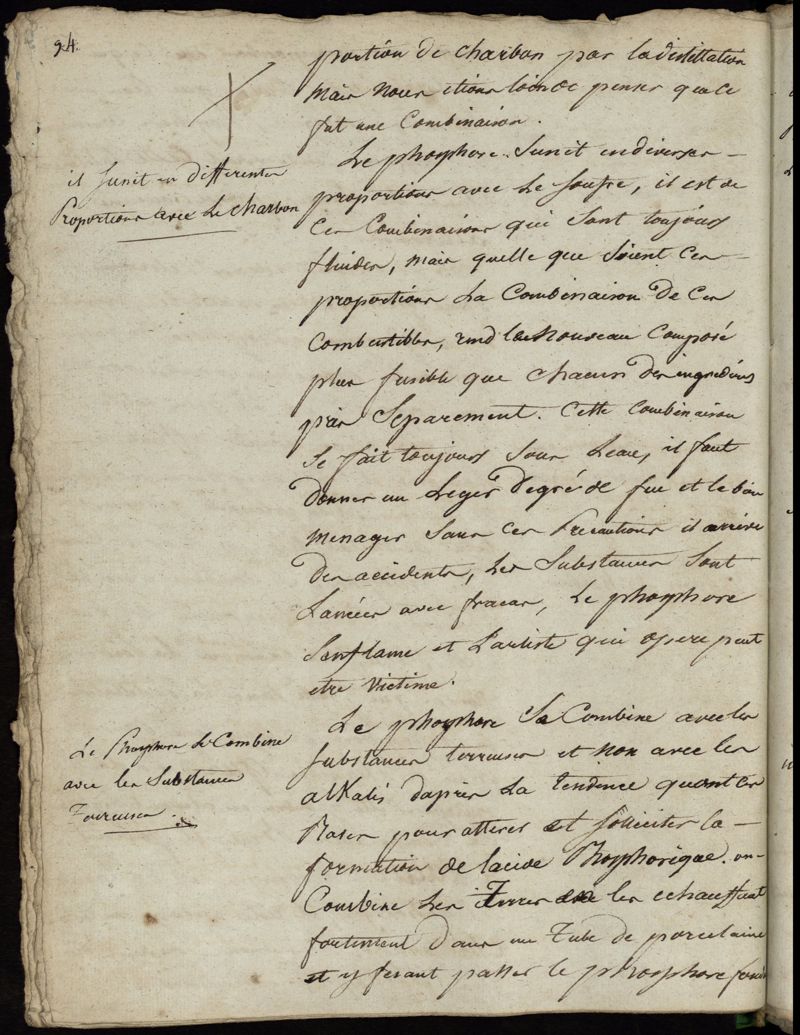 94.
portion de charbon par la distillation
mais nous etions loin de penser que ce
fut une Combinaison.
il sunit en differentes
Proportions avec Le charbon
Le phosphore sunit en diverses
proportions avec Le soufre, il est de
Ces Combinaisons qui sont toujours
fluides, mais quelle que soient Ces
proportions La Combinaison De Ces
Combustibles, rend le nouveau Composé
plus fusible que chacun Des ingrediens
pris Separement. Cette Combinaison
se fait toujours sous Leau, il faut
donner un Leger Degré de feu et le bien
menager sans Ces Precautions il arrive
Des accidents, Les Substances sont
Lancées avec fracas, Le phosphore
Senflame et L'artiste qui opere peut
etre victime.
Le Phosphore Se Combine
avec les Substances
Terreuses.
Le phosphore Se Combine avec les
substances terreuses et non avec les
alKalis daprès La tendence quont ces
Bases pour attirer et solliciter la
formation de lacide Phosphorique. on
Combine Les Terres en les echauffant
fortement Dans un Tube de porcelaine
et y fesant passer le phosphore